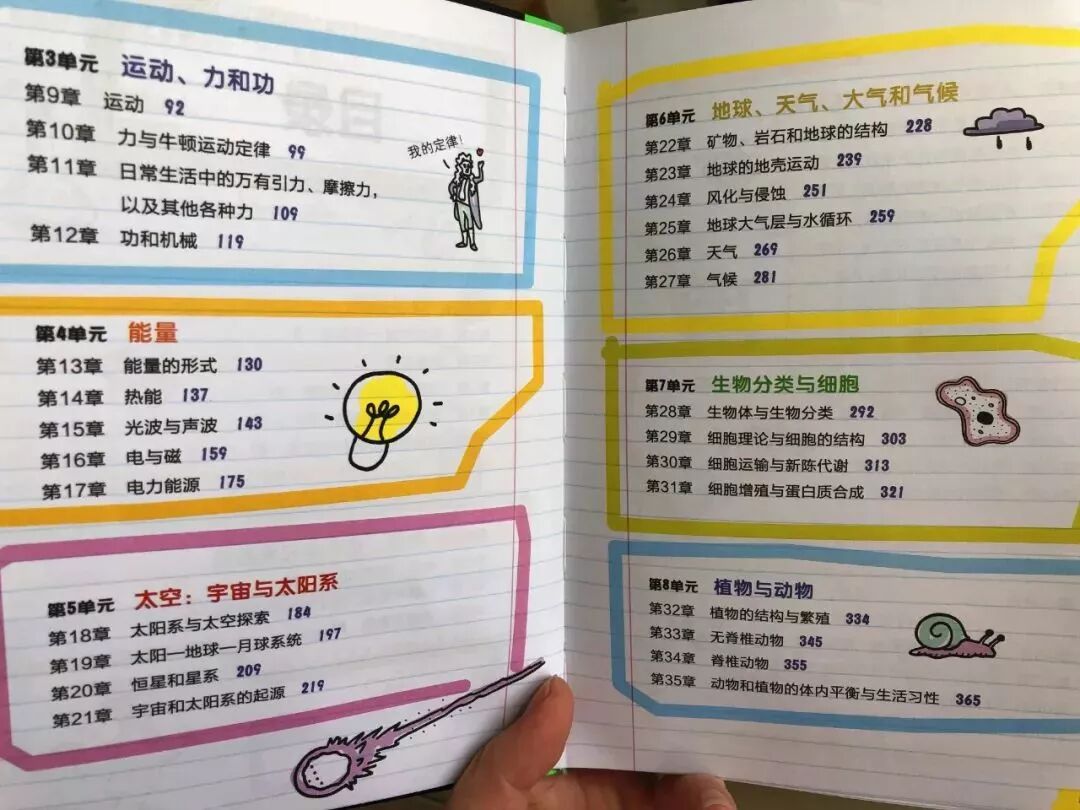 第3单元 运动、力和功
第9章 运动 92
第10章 力与牛顿运动定律 99
第11章 日常生活中的万有引力、摩擦力，
以及其他各种力 109
第12章 功和机械 119
我的定律！
第4单元 能量
第13章 能量的形式 130
第14章 热能 137
第15章 光波与声波 143
第16章 电与磁 159
第17章 电力能源 175
第5单元 太空：宇宙与太阳系
第18章 太阳系与太空探索 184
第19章 太阳—地球—月球系统 197
第20章 恒星和星系 209
第21章 宇宙和太阳系的起源 219
第6单元 地球、天气、大气和气候
第22章 矿物、岩石和地球的结构 228
第23章 地球的地壳运动 239
第24章 风化与侵蚀 251
第25章 地球大气层与水循环 259
第26章 天气 269
第27章 气候 281
第7单元 生物分类与细胞
第28章 生物体与生物分类 292
第29章 细胞理论与细胞的结构 303
第30章 细胞运输与新陈代谢 313
第31章 细胞增殖与蛋白质合成 321
第8单元 植物与动物
第32章 植物的结构与繁殖 334
第33章 无脊椎动物 345
第34章 脊椎动物 355
第35章 动物和植物的体内平衡与生活习性 365